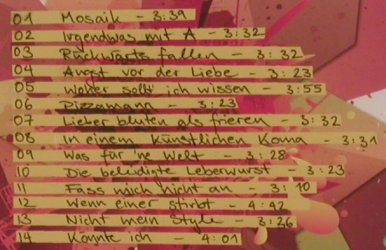 01 Mosaik - 3:39
02 Irgendwas mit A - 3:32
03 Rückwärts fallen - 3:32
04 Angst vor der Liebe - 3:23
05 Woher sollt ich wissen - 3:55
06 Pizzamann - 3:23
07 Lieber bluten als frieren - 3:32
08 In einem künstlichen Koma - 3:31
09 Was für 'ne Welt - 3:28
10 Die beleidigte Leberwurst - 3:23
11 Fass mich nicht an - 3:10
12 Wenn einer stirbt - 4:42
13 Nicht mein Style - 3:26
14 Könnte ich - 4:01